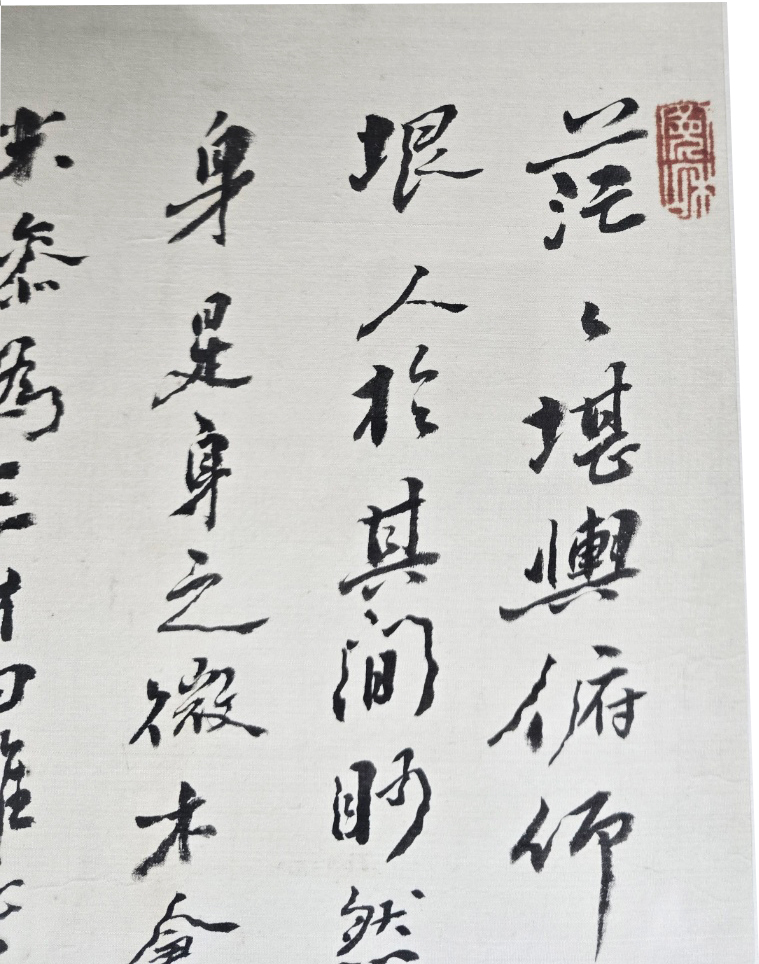 茫々堪輿俯仰
垠人於其間眇然
身是身之微太倉
米參為三才曰惟